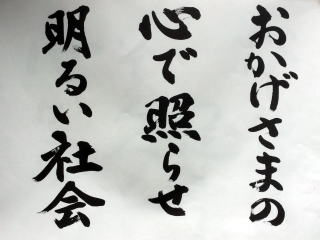 おかげさまの
心で照らせ
明るい社会